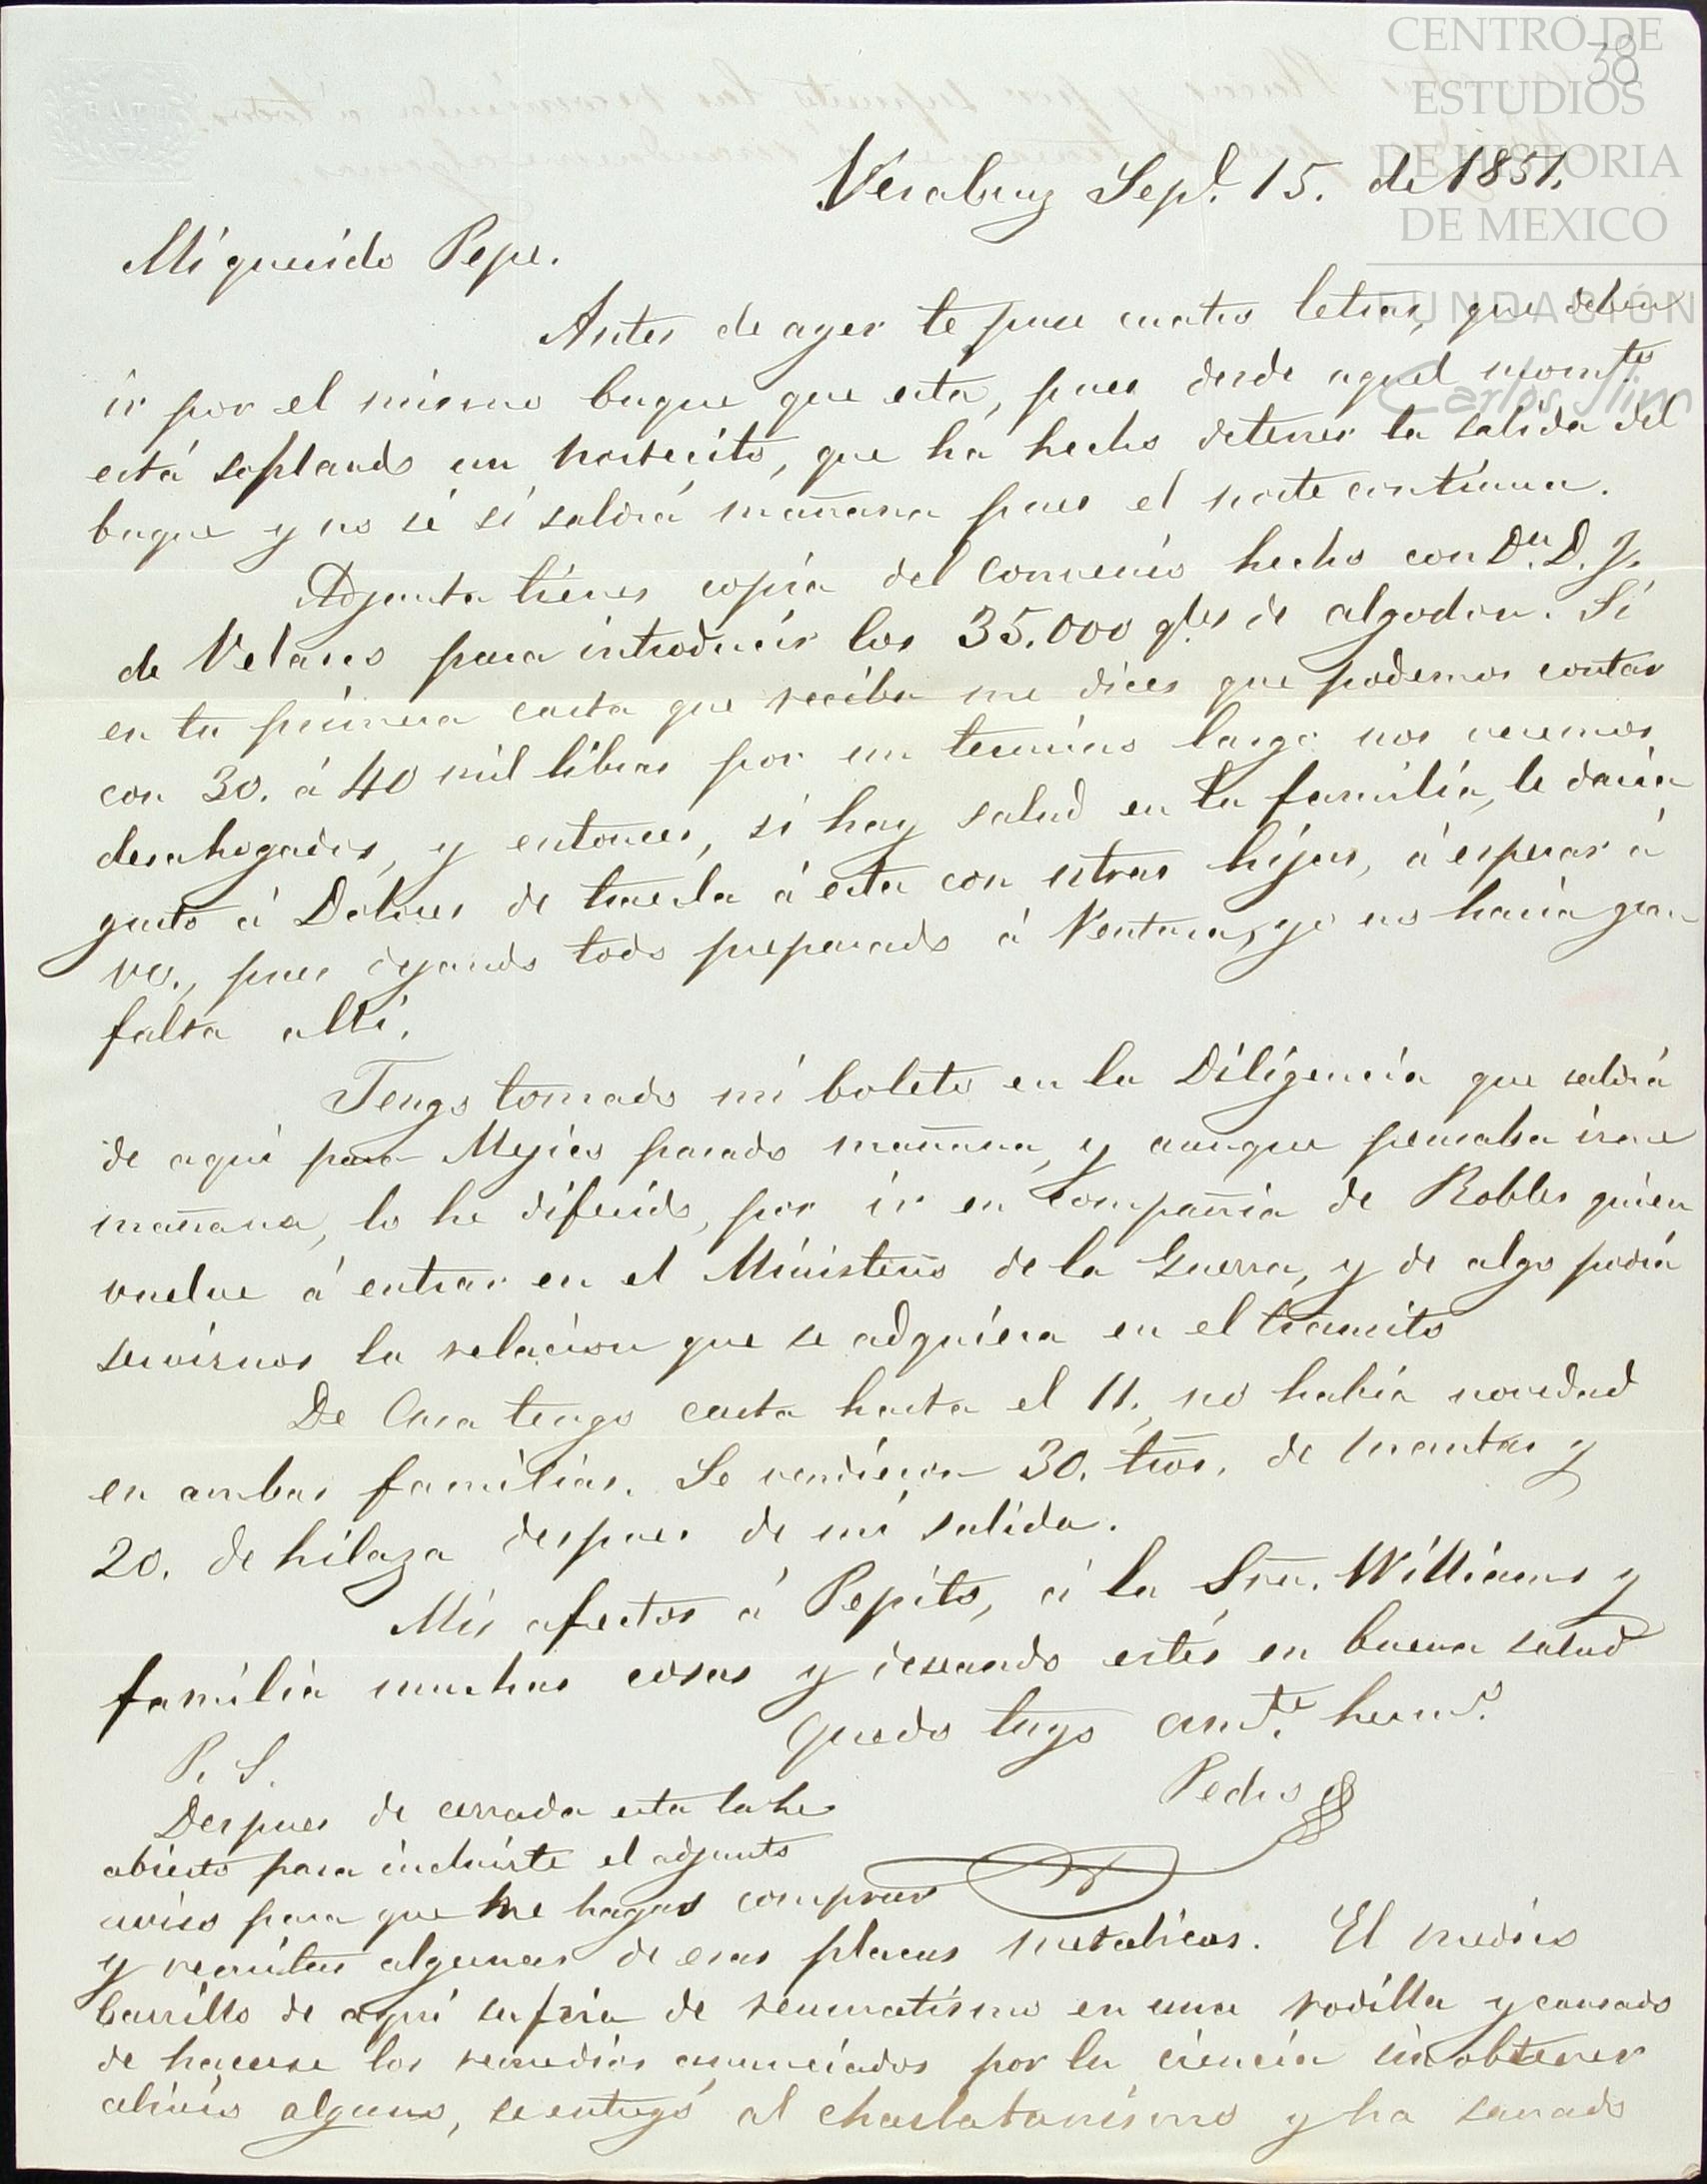 CENTRO DE
ESTUDIOS
DE HISTORIA
DE MEXICO
FUNDACIÓN
Carlos Slim
38
Veracruz Sepe. 15. de 1851.
Mi querido Pepe.
Antes de ayer te puse cuatro letras, que deben
ir por el mismo buque que esta, pues desde aquel momto
está soplando un nortecito, que ha hecho detener la salida del
buque y no sé si saldrá mañana pues el norte continua.
Adjunta tienes copia del convenio hecho con Dn. D. J.
de Velasco para introducir los 35.000 qles de algodon. Si
en tu primera carta que reciba me dices que podemos contar
con 30. á 40 mil libras por un termino largo nos veremos
desahogados, y entonces, si hay salud en tu familia, le daria
gusto á Dolores de traerla á esta con ntras hijas, á esperar á
vs., pues dejando todo preparado á Ventura, yo no haria gran
falta allí.
Tengo tomado mi boleto en la Diligencia que saldrá
de aquí para Mejico pasado mañana, y aunque pensaba irme
mañana, lo he diferido, por ir en compañia de Robles quien
vuelve á entrar en el Ministerio de la Guerra, y de algo podrá
servirnos la relacion que se adquiera en el transito
De Casa tengo carta hasta el 11., no habia novedad
en ambas familias. Se vendieron 30. tros. de mantas y
20. de hilaza despues de mi salida.
Mis afectos á Pepito, á la Sra. Williams y
familia muchas cosas y deseando estés en buena salud
quedo tuyo amte. hermo.
Pedro
P. S.
Despues de cerrada esta la he
abierto para incluirte el adjunto
aviso para que me hagas comprar
y remitas algunas de esas placas metalicas. El medico
Carrillo de aquí sufria de reumatismo en una rodilla y cansado
de hacerse los remedios anunciados por la ciencia sin obtener
alivio alguno, se entregó al charlatanismo y ha sanado